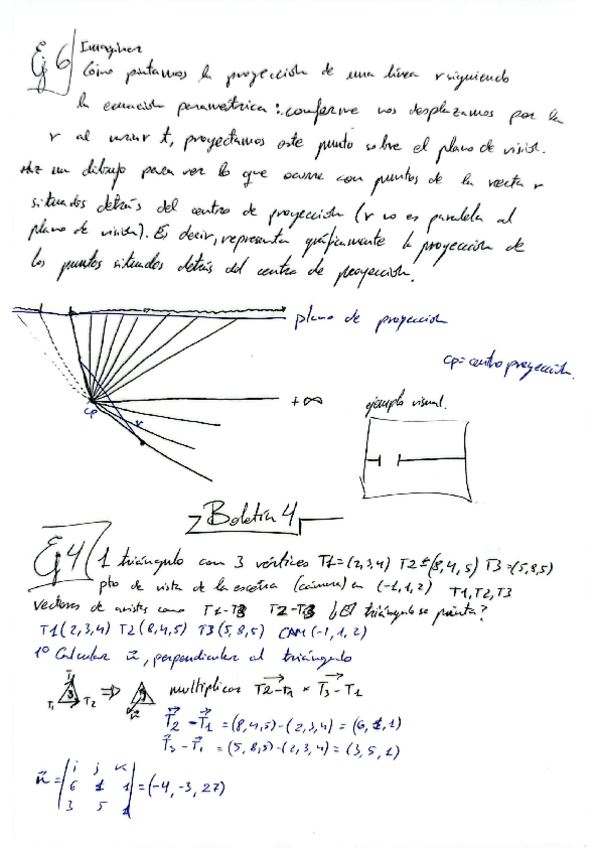 Ej 6 Imaginar
Cómo pintamos la proyección de una línea r siguiendo
la ecuación paramétrica: conforme nos desplazamos por la
r al variar t, proyectamos este punto sobre el plano de visión.
Haz un dibujo para ver lo que ocurre con puntos de la recta r
situados detrás del centro de proyección (r no es paralela al
plano de visión). Es decir, representa gráficamente la proyección de
los puntos situados detrás del centro de proyección.
plano de proyección
cp=centro proyección.
cp
r
+∞
ejemplo visual.
Boletín 4
Ej 4 1 triángulo con 3 vértices T1=(2,3,4) T2=(8,4,5) T3=(5,8,5)
pto de vista de la escena (cámara) en (-1,1,2) T1,T2,T3
vectores de aristas como T1-T3 T2-T3 ¿El triángulo se pinta?
T1(2,3,4) T2(8,4,5) T3(5,8,5) CAM(-1,1,2)
1º Calcular n, perpendicular al triángulo
T1 T2 ⇒ n multiplicar T2-T1 × T3-T1
T2-T1=(8,4,5)-(2,3,4)=(6,1,1)
T3-T1=(5,8,5)-(2,3,4)=(3,5,1)
n=|i j k
6 1 1
3 5 1|=(-4,-3,27)